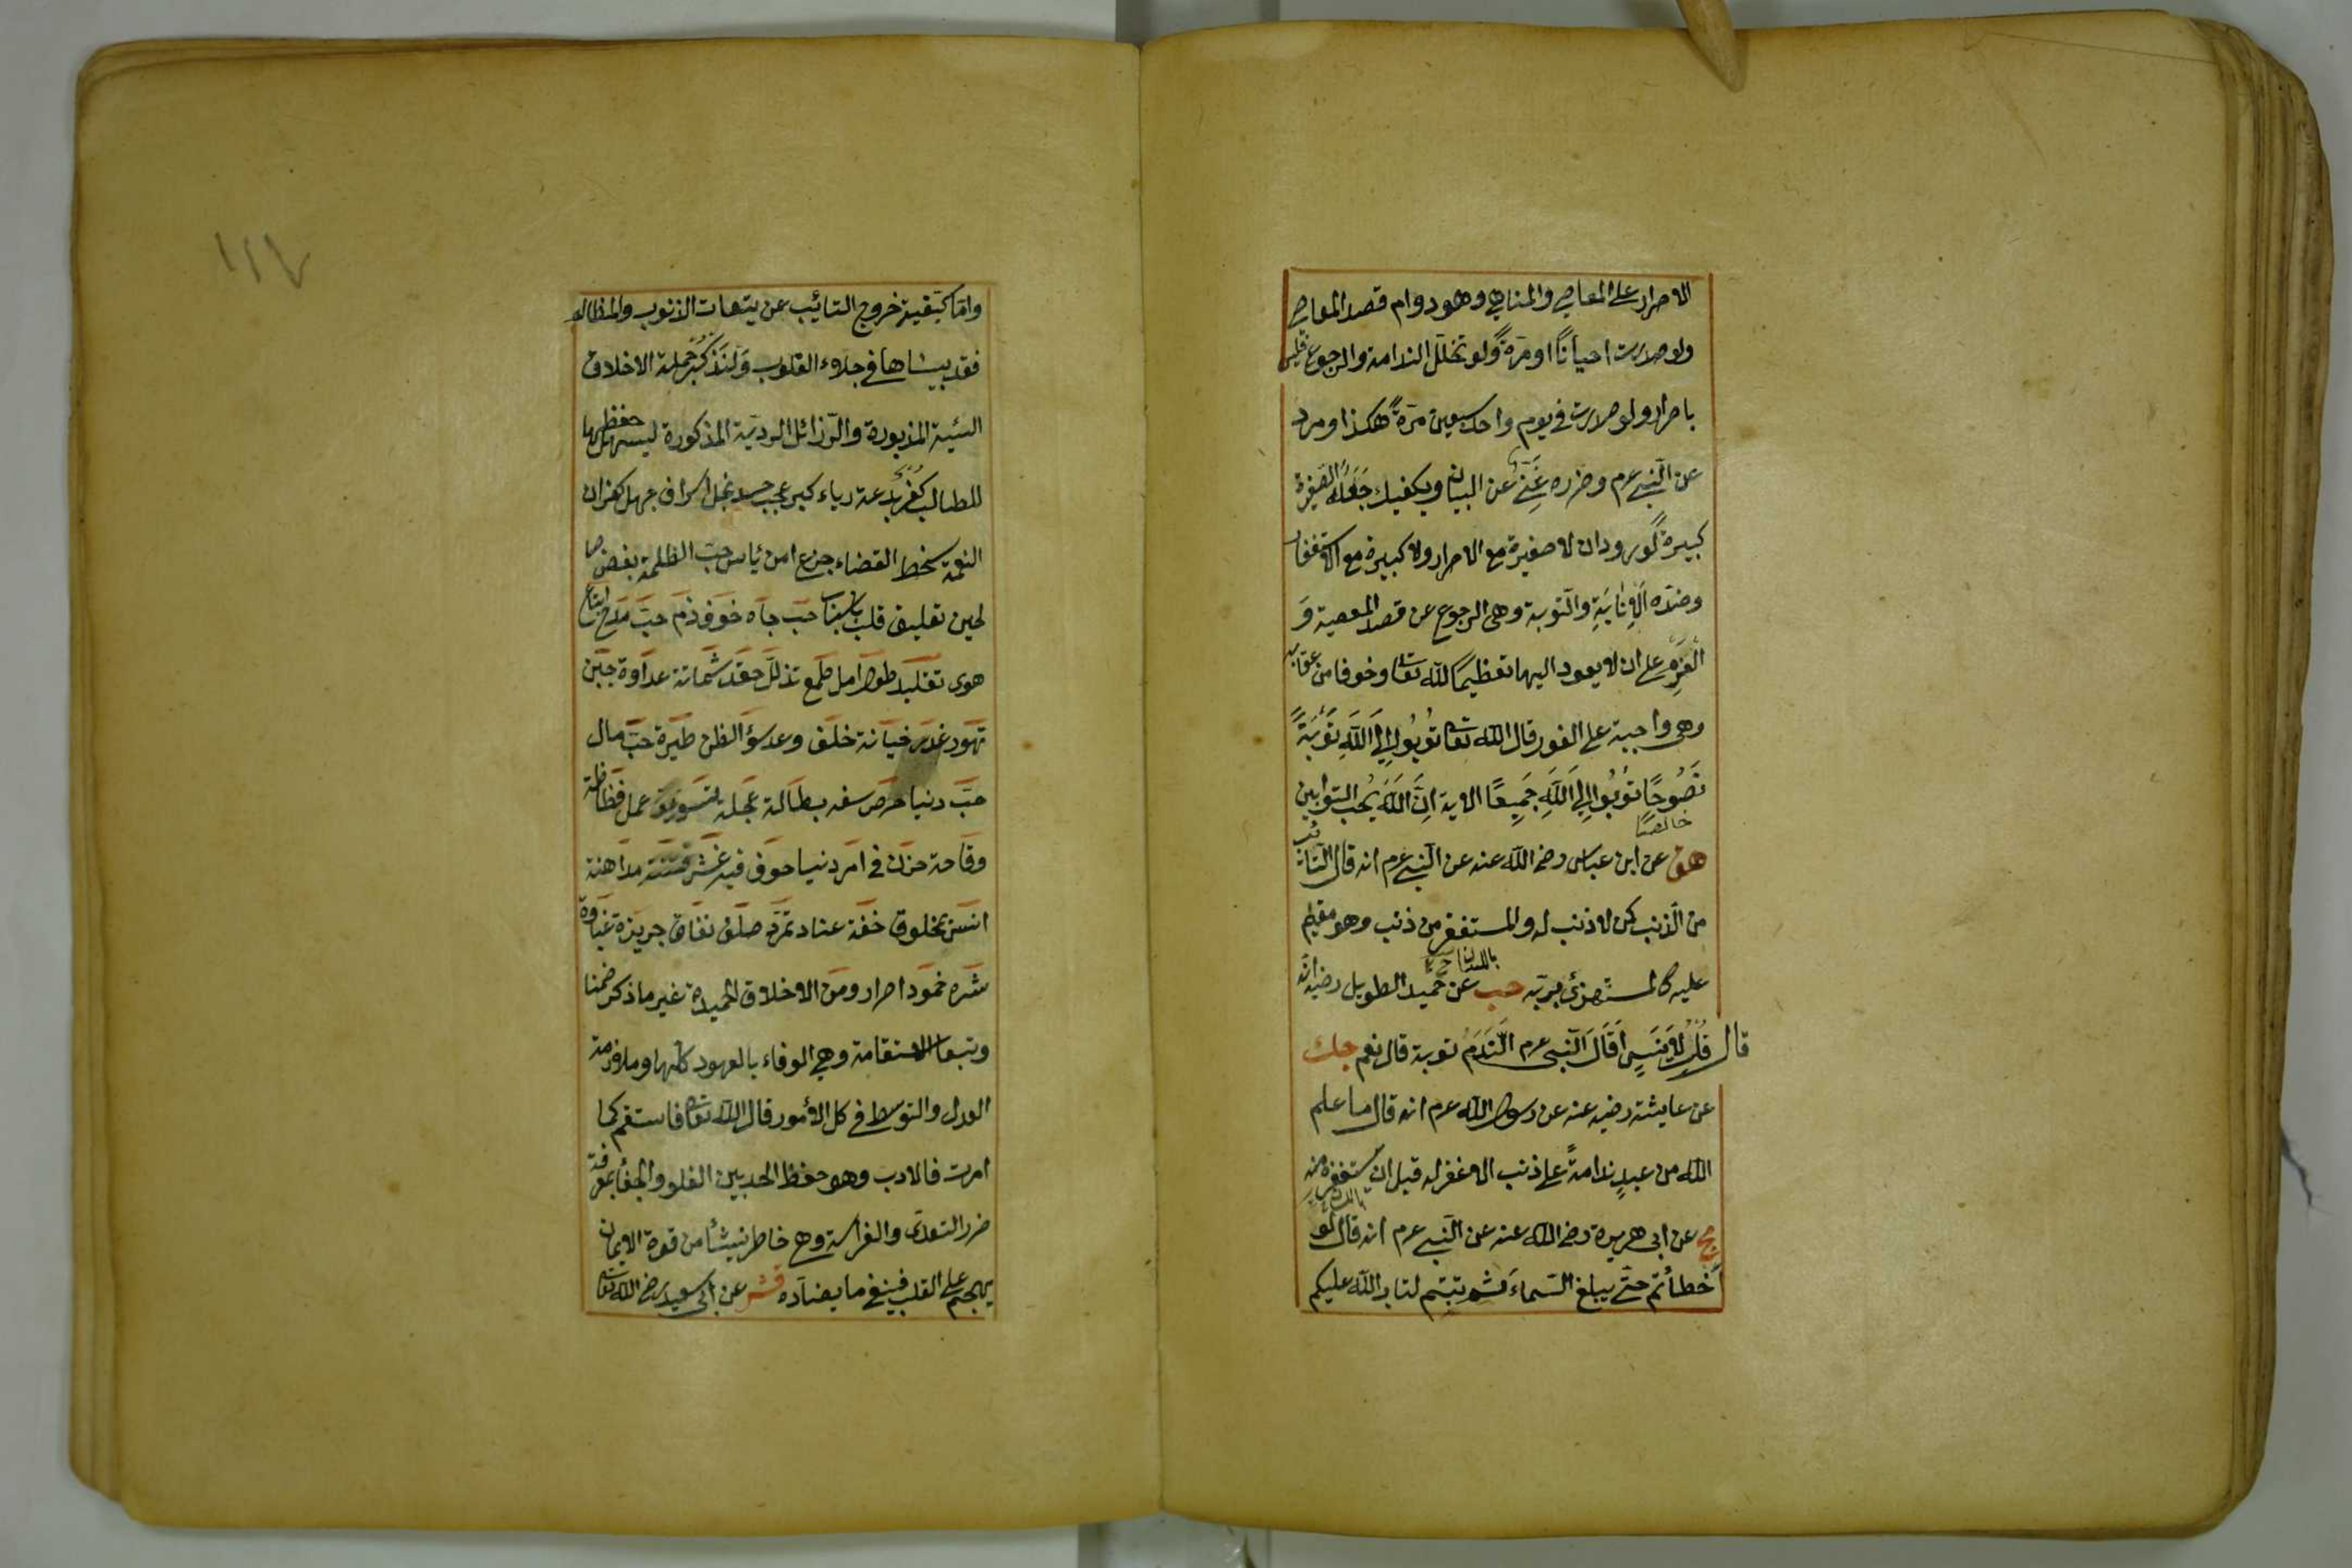 الاصرار على المعاصي والمناهي وهو دوام قصد المعاصي
ولو صدرت احيانًا او مرّةً ولو تخلّل الندامة والرجوع فليس
باصرار ولو صدرت في يوم واحد سبعين مرّةً هكذا ورد
عن النّبي عرم وضرره غَنِيٌّ عن البيان ويكفيك جَعْلُهُ الصّغيرة
كبيرةً لورود ان لا صغيرة مع الاصرار ولا كبيرة مع الاستغفار
وضدّه الاِنابَةِ والتّوبة وهى الرجوع عن قصد المعصية وَ
العَزمِ على ان لا يعود اليها تعظيمًا للّه تعا وخوفا من عقابه
وهى واجبة على الفور قال اللّه تعا تُوبُوا اِلَى اللّهِ تَوْبَةً
نَصُوحًا تُوبُوا اِلَى اللّهِ جَمِيعًا الاية اِنَّ اللّهَ يُحب التوّابين
خالصًا
هق عن ابن عباس رضى اللّه عنه عن النّبي عرم انه قال التّائب
من الذّنب كمن لا ذنب له والمستغفر من ذنب وهو مقيم
باللسان
عليه كالمستهزئ بربّه حب عن حُميد الطويل رضيه انّه
قال قُلْتُ لِاَنَسٍ أَقَالَ النّبى عرم النَّدَمُ توبة قال نعم حك
عن عايشة رضيه عنه عن رسول اللّه عرم انه قال ما علم
اللّه من عبدٍ ندامةً على ذنب الا غفر له قبل ان يستغفره منه
باللسان
مج عن ابى هريرة رضى اللّه عنه عن النّبي عرم انه قال لو
أخطأتم حتّى يبلغ السّماءَ ثم تبتم لتاب اللّه عليكم
١١٧
وامّا كيفية خروج التائب عن تبعات الذنوب والمظالم
فقد بيناها في جلاء القلوب وَلنَذكُر جُملة الاخلاق
السيّئة المزبورة والرّذائل الرديّة المذكورة ليسهل حفظها
للطالب كُفرٌ بدعة رياء كبر عجب حسد بخل اسراف جهل كفران
النعمة سخط القضاء جزع امن يأس حبّ الظلمة بغض صا
لحين تعليق قلب باسباب حبّ جاه خوف ذم حبّ مدح اتباع
هوى تقليد طول امل طمع تذلّل حقد شماتة عداوة جبن
تهوّر غدر خيانة خلف وعد سوء الظن طيرة حبّ مال
حبّ دنيا حرص سفه بطالة عجلة تسويف عمل فظاظة
وقاحة حزن في امر دنيا خوف فيه غش فتنة مداهنة
انس بمخلوق خفّة عناد تمرّد صلف نفاق جربزة غباوة
شره خمود اصرار ومن الاخلاق الحميدة غير ما ذكر ضمنا
وتبعا الاستقامة وهي الوفاء بالعهود كلّها وملازمة
العدل والتوسط في كل الأمور قال اللّه تعا فاستقم كما
امرت فالادب وهو حفظ الحد بين الغلو والجفا بمعرفة
ضرر التعدّى والفراسة وهى خاطر ينشأ من قوة الايمان
يهجم على القلب فينفي ما يضادّه قشر عن ابي سعيد رضى اللّه تعا